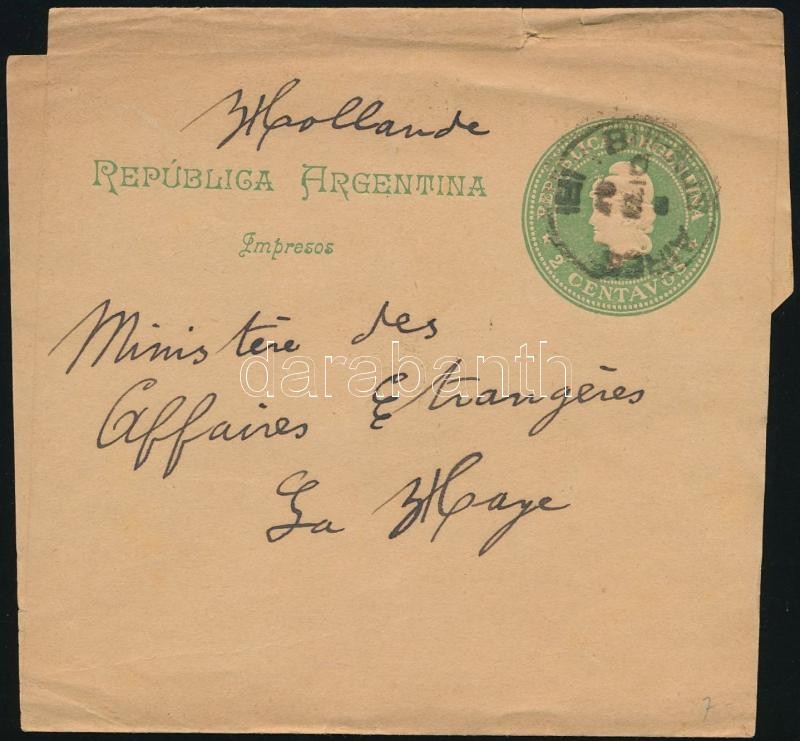 Hollande
REPÚBLICA ARGENTINA
Impresos
REPUBLICA ARGENTINA
2 CENTAVOS
Ministère des
Affaires Etrangères
La Haye
darabanth
7